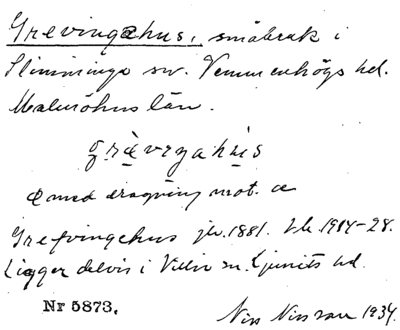 Grevingehus, småbruk i
Slimminge sn. Vemmenhögs hd.
Malmöhus län.
grævɩŋahɯs
æ med dragning mot a
Grefvingehus jb. 1881. tlb 1914-28.
Ligger delvis i Villie sn. Ljunits hd.
Nr 5873.
Nils Nilsson 1934.